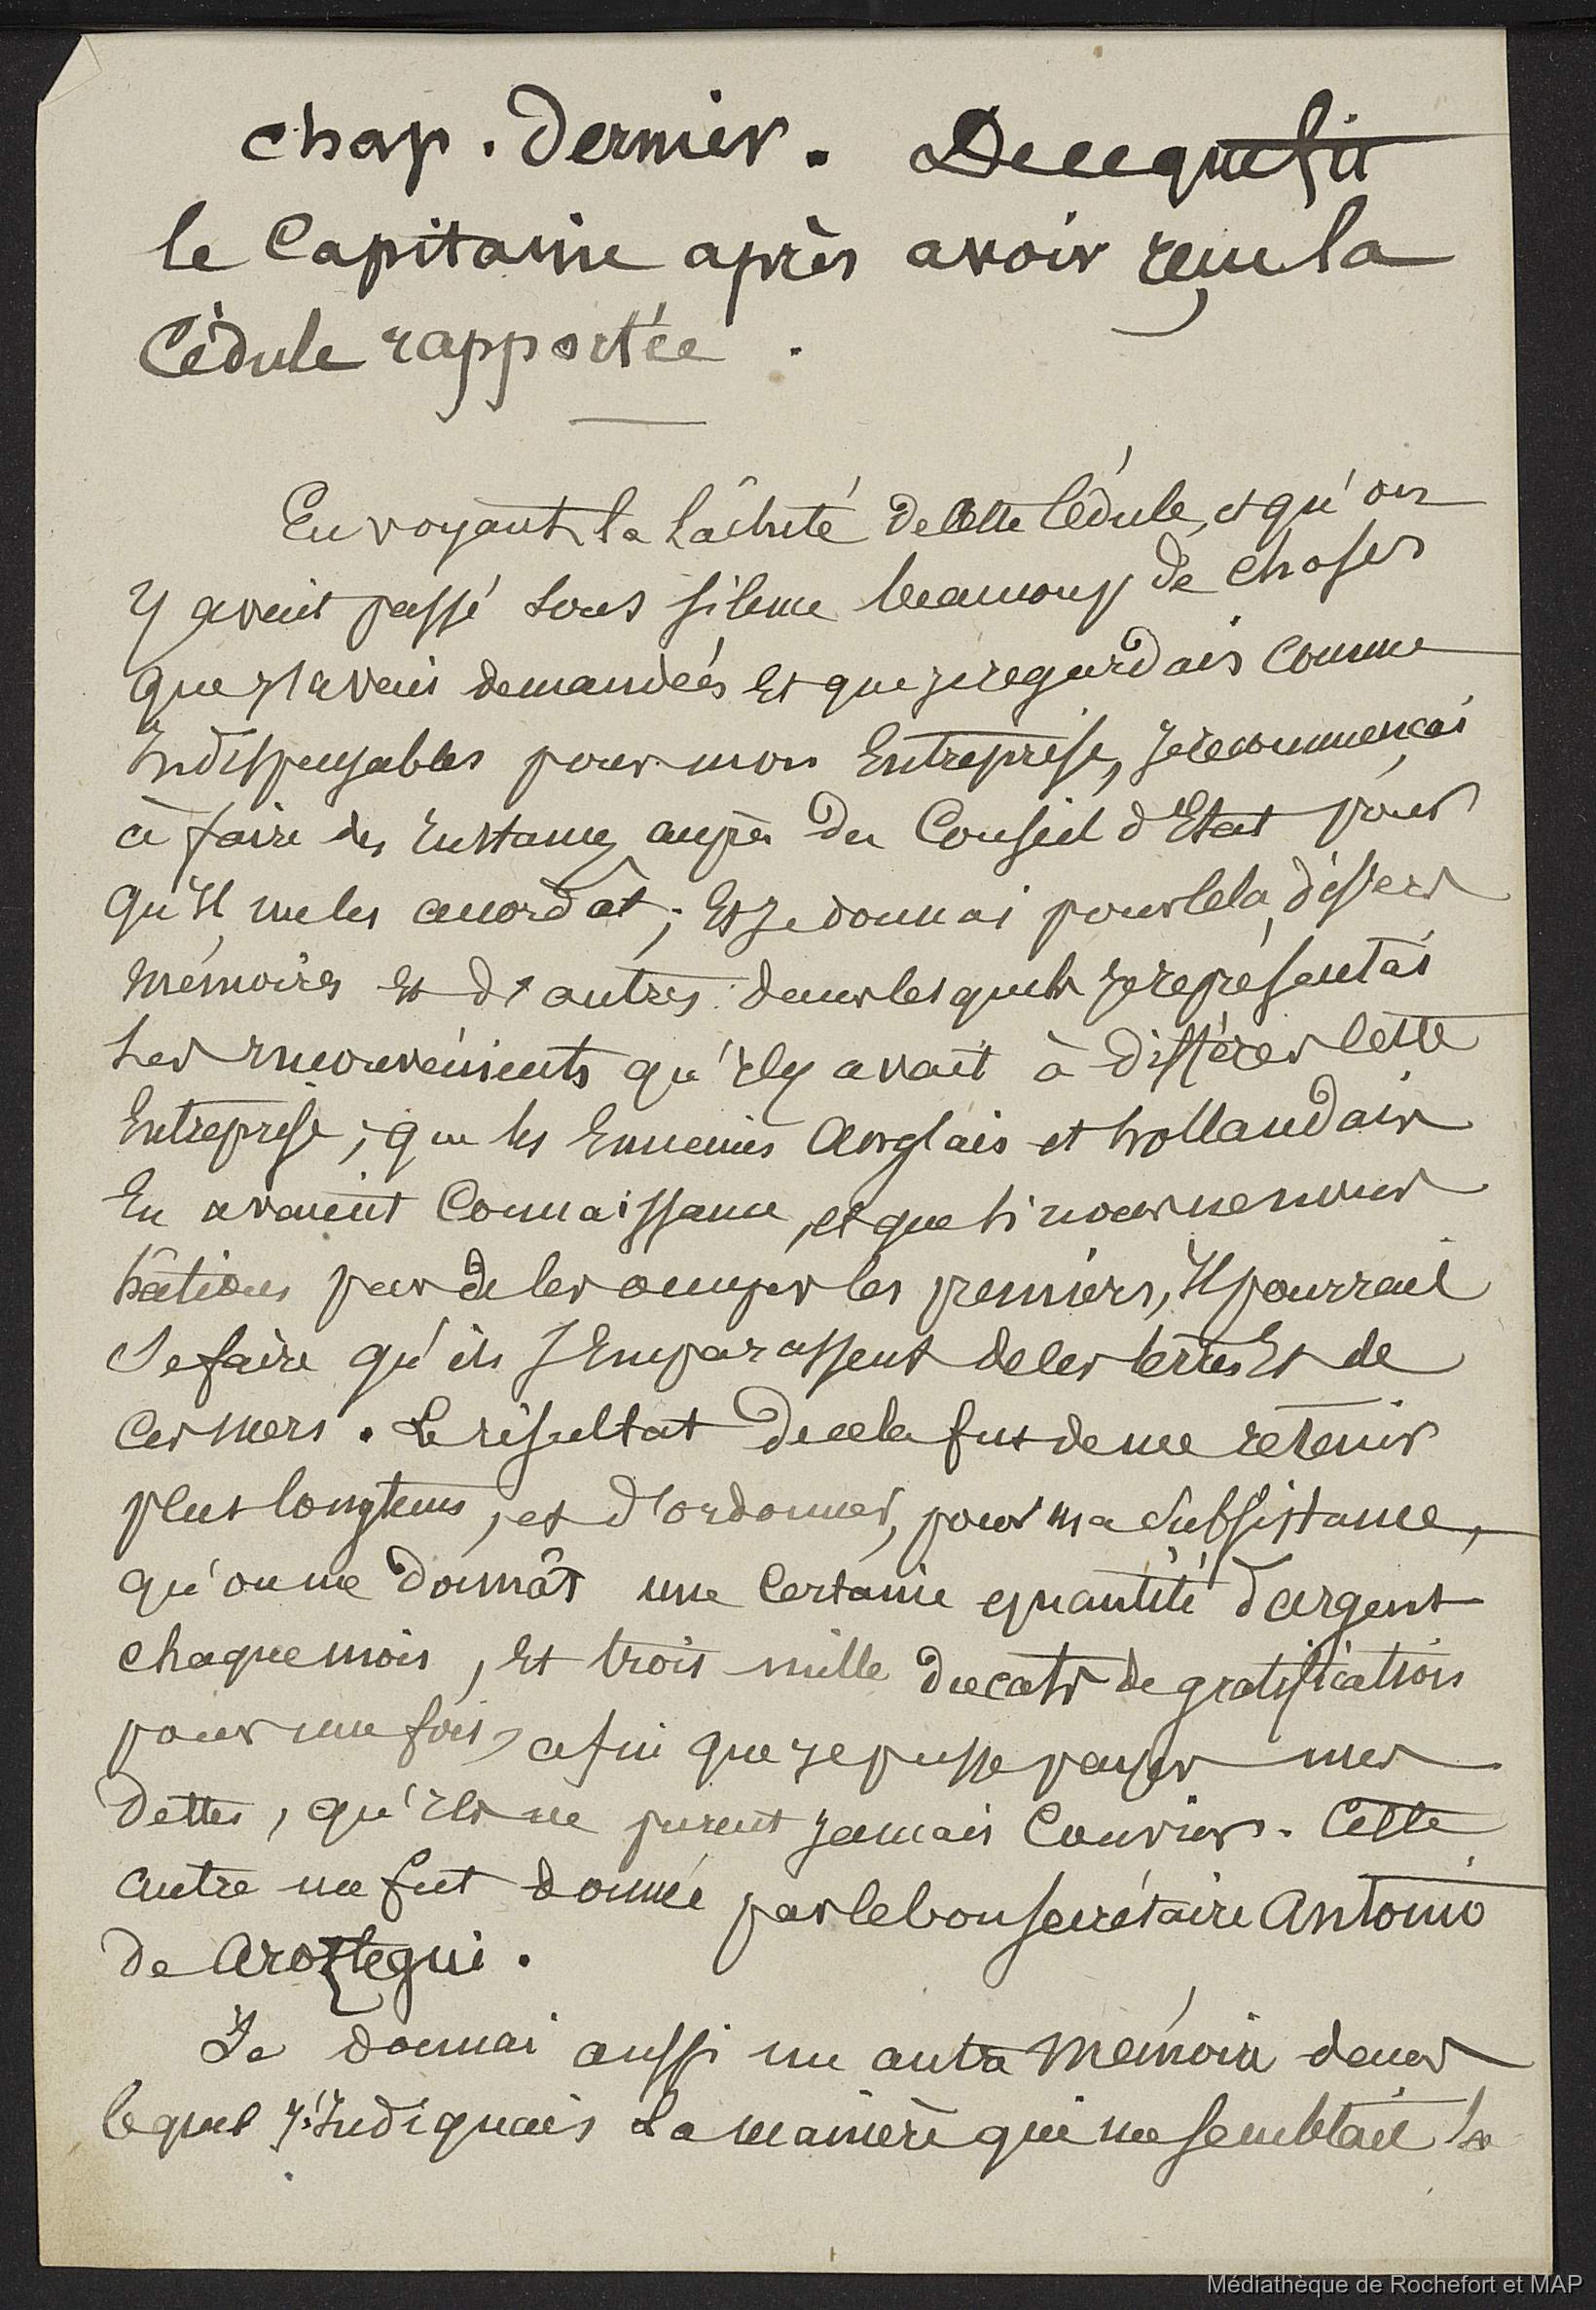 chap. Dernier. De ce que fit
le Capitaine après avoir reçu la
Cédule rapportée.
En voyant la lâcheté de cette Cédule, et qu'on
y avait passé sous silence beaucoup de choses
que j'avais demandées et que je regardais comme
Indispensables pour mon Entreprise, je recommençai
à faire des Instances auprès du Conseil d'Etat pour
qu'Il me les accordât; Et Je donnai pour cela divers
mémoires et d'autres dans lesquels je représentai
les inconvénients qu'Il y avait à différer cette
Entreprise; que les Ennemis Anglais et hollandais
En avaient Connaissance, et que si nous ne nous
hâtions pas de les occuper les premiers, Il pourrait
se faire qu'ils s'Emparassent de ces terres Et de
ces mers. Le résultat de cela fut de me retenir
plus longtems, et d'ordonner, pour ma subsistance,
qu'on me donnât une Certaine quantité d'argent
chaque mois, Et trois mille ducats de gratification
pour une fois, afin que je pusse payer mes
dettes, qu'Ils ne purent jamais Couvrir. Cette
autre me fut donnée par le bon secrétaire Antonio
de Aroztegui.
Je donnai aussi un autre mémoire dans
lequel j'Indiquais la manière qui me semblait la
Médiathèque de Rochefort et MAP